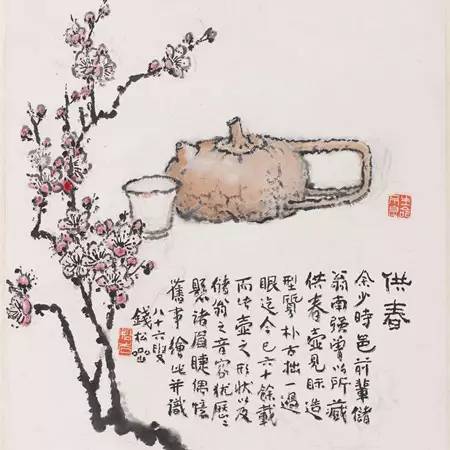 供春
余少時邑前輩儲
翁南强曾以所藏
供春壺見眎造
型質朴古拙一過
眼迄今已六十餘載
而此壺之形狀以及
儲翁之音容猶歷々
懸諸眉睫偶憶
舊事繪此并識
八十六叟
錢松喦